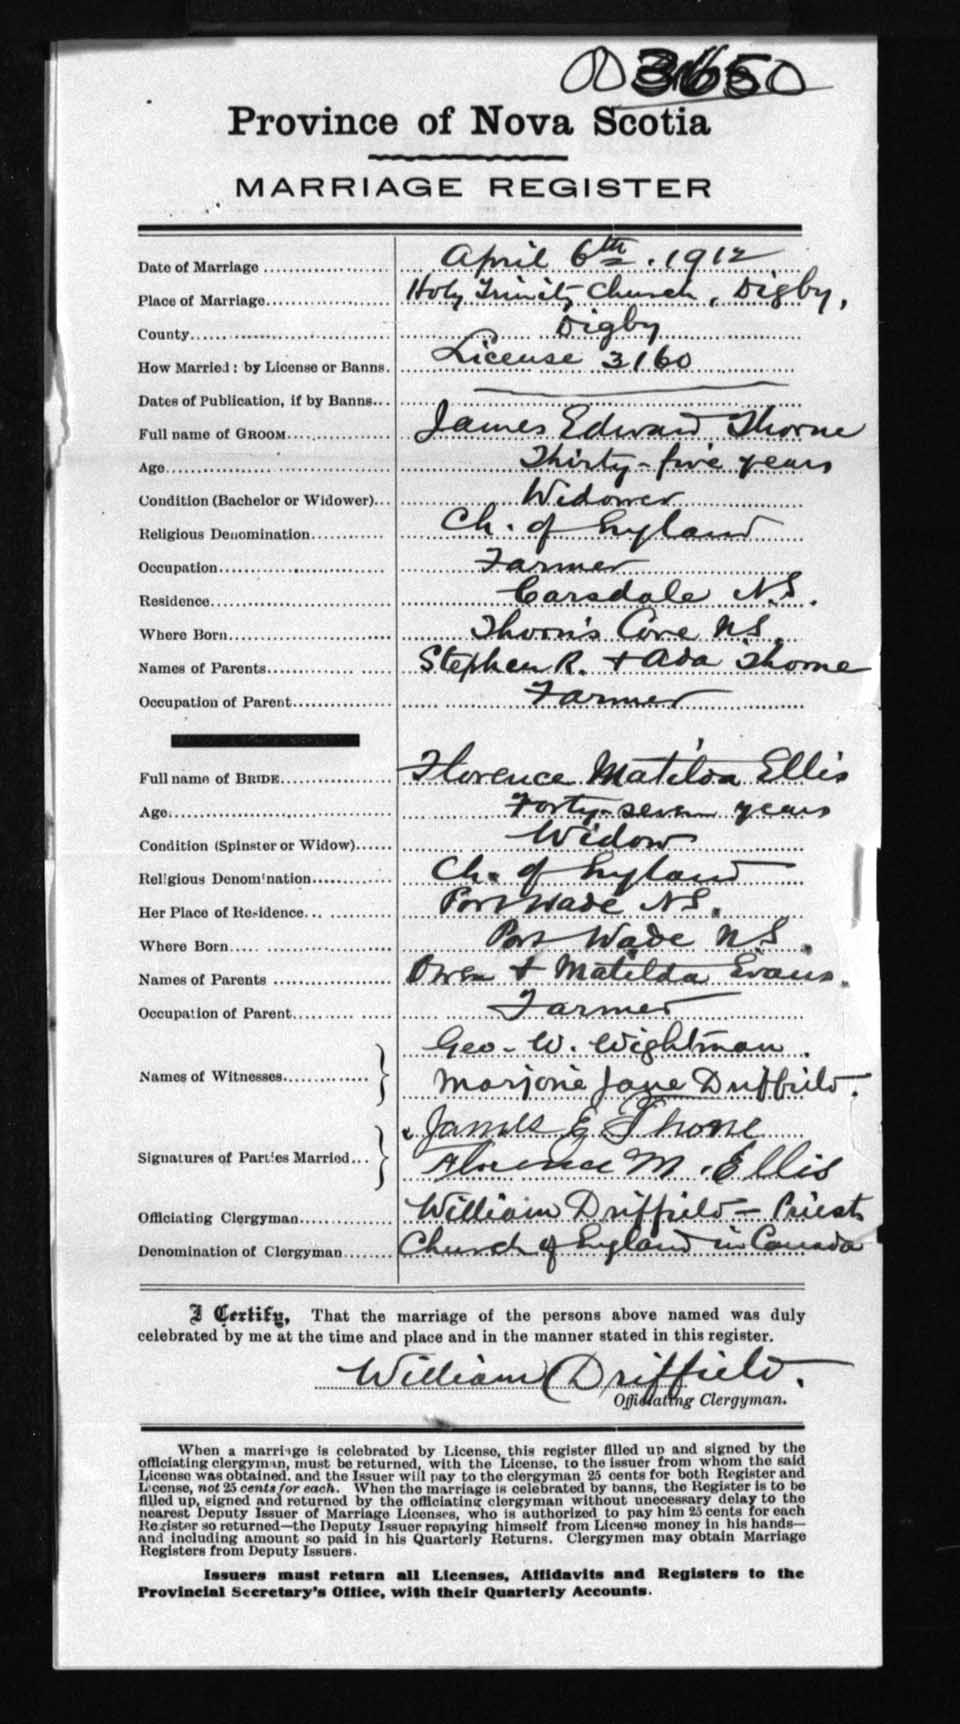 Province of Nova Scotia
MARRIAGE REGISTER
Date of Marriage April 6th. 1912
Place of Marriage Holy Trinity Church, Digby,
County Digby
How Married: by License or Banns. License 3160
Dates of Publication, if by Banns
Full name of GROOM James Edward Thorne
Age Thirty-five years
Condition (Bachelor or Widower) Widower
Religious Denomination Ch. of England
Occupation Farmer
Residence Carsdale N.S.
Where Born Thorn's Cove N.S.
Names of Parents Stephen R. + Ada Thorne
Occupation of Parent Farmer
Full name of BRIDE Florence Matilda Ellis
Age Forty-seven years
Condition (Spinster or Widow) Widow
Religious Denomination Ch. of England
Her Place of Residence Port Wade N.S.
Where Born Port Wade N.S.
Names of Parents Owen + Matilda Evans.
Occupation of Parent Farmer
Names of Witnesses Geo. W. Wightman.
Marjorie Jane Driffield.
Signatures of Parties Married James E Thorne
Florence M. Ellis
Officiating Clergyman William Driffield - Priest
Denomination of Clergyman Church of England in Canada
I Certify, That the marriage of the persons above named was duly
celebrated by me at the time and place and in the manner stated in this register.
William Driffield.
Officiating Clergyman.
When a marriage is celebrated by License, this register filled up and signed by the
officiating clergyman, must be returned, with the License, to the issuer from whom the said
License was obtained, and the Issuer will pay to the clergyman 25 cents for both Register and
License, not 25 cents for each. When the marriage is celebrated by banns, the Register is to be
filled up, signed and returned by the officiating clergyman without unecessary delay to the
nearest Deputy Issuer of Marriage Licenses, who is authorized to pay him 25 cents for each
Register so returned—the Deputy Issuer repaying himself from License money in his hands—
and including amount so paid in his Quarterly Returns. Clergymen may obtain Marriage
Registers from Deputy Issuers.
Issuers must return all Licenses, Affidavits and Registers to the
Provincial Secretary's Office, with their Quarterly Accounts.